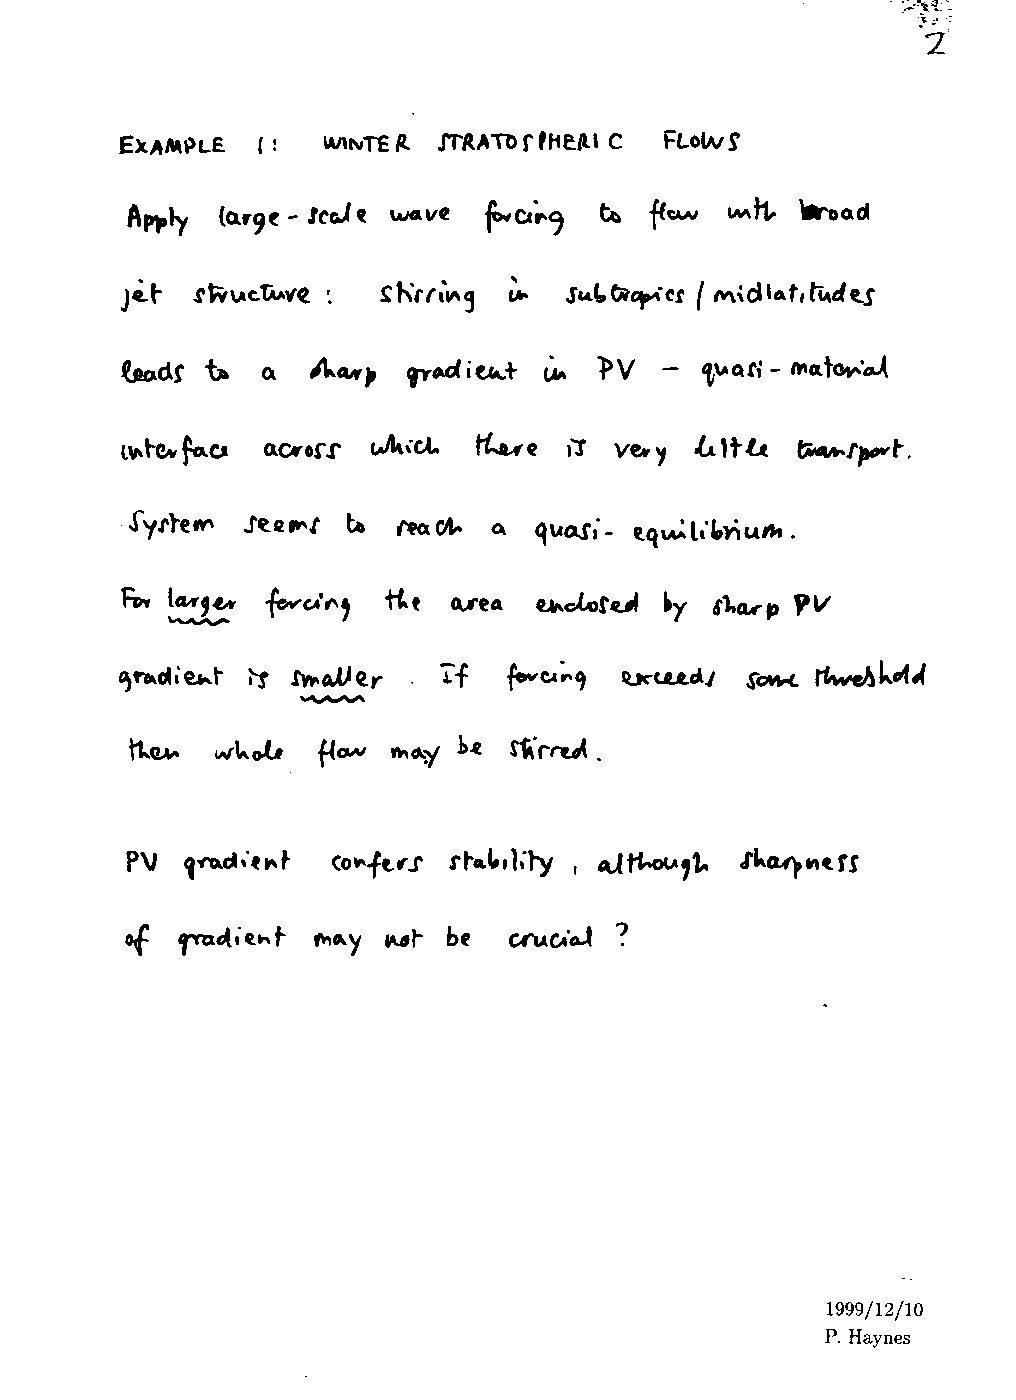 2
EXAMPLE 1: WINTER STRATOSPHERIC FLOWS
Apply large-scale wave forcing to flow with broad
jet structure: stirring in subtropics / midlatitudes
leads to a sharp gradient in PV - quasi-material
interface across which there is very little transport.
System seems to reach a quasi-equilibrium.
For larger forcing the area enclosed by sharp PV
gradient is smaller. If forcing exceeds some threshold
then whole flow may be stirred.
PV gradient confers stability, although sharpness
of gradient may not be crucial?
1999/12/10
P. Haynes